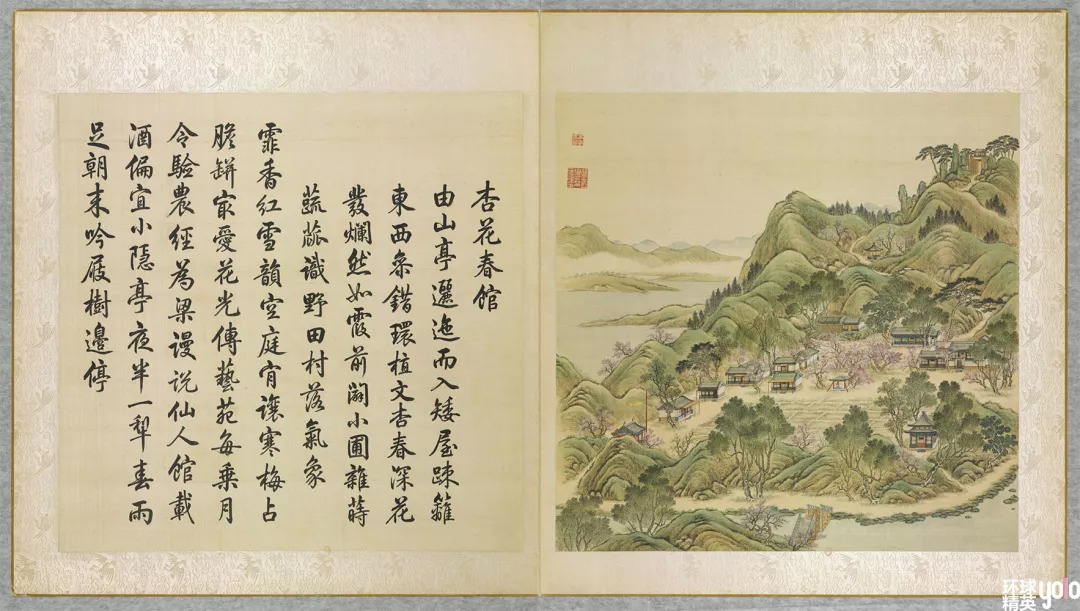 杏花春館
由山亭邐迤而入矮屋疎籬
東西叅錯環植文杏春深花
發爛然如霞前闢小圃雜蒔
蔬蓏識野田村落氣象
霏香紅雪韻空庭肯讓寒梅占
膽缾最愛花光傳藝苑每乗月
令驗農經為梁謾說仙人館載
酒偏宜小隱亭夜半一犁春雨
足朝来吟屐樹邊停
环球
精英
yolo